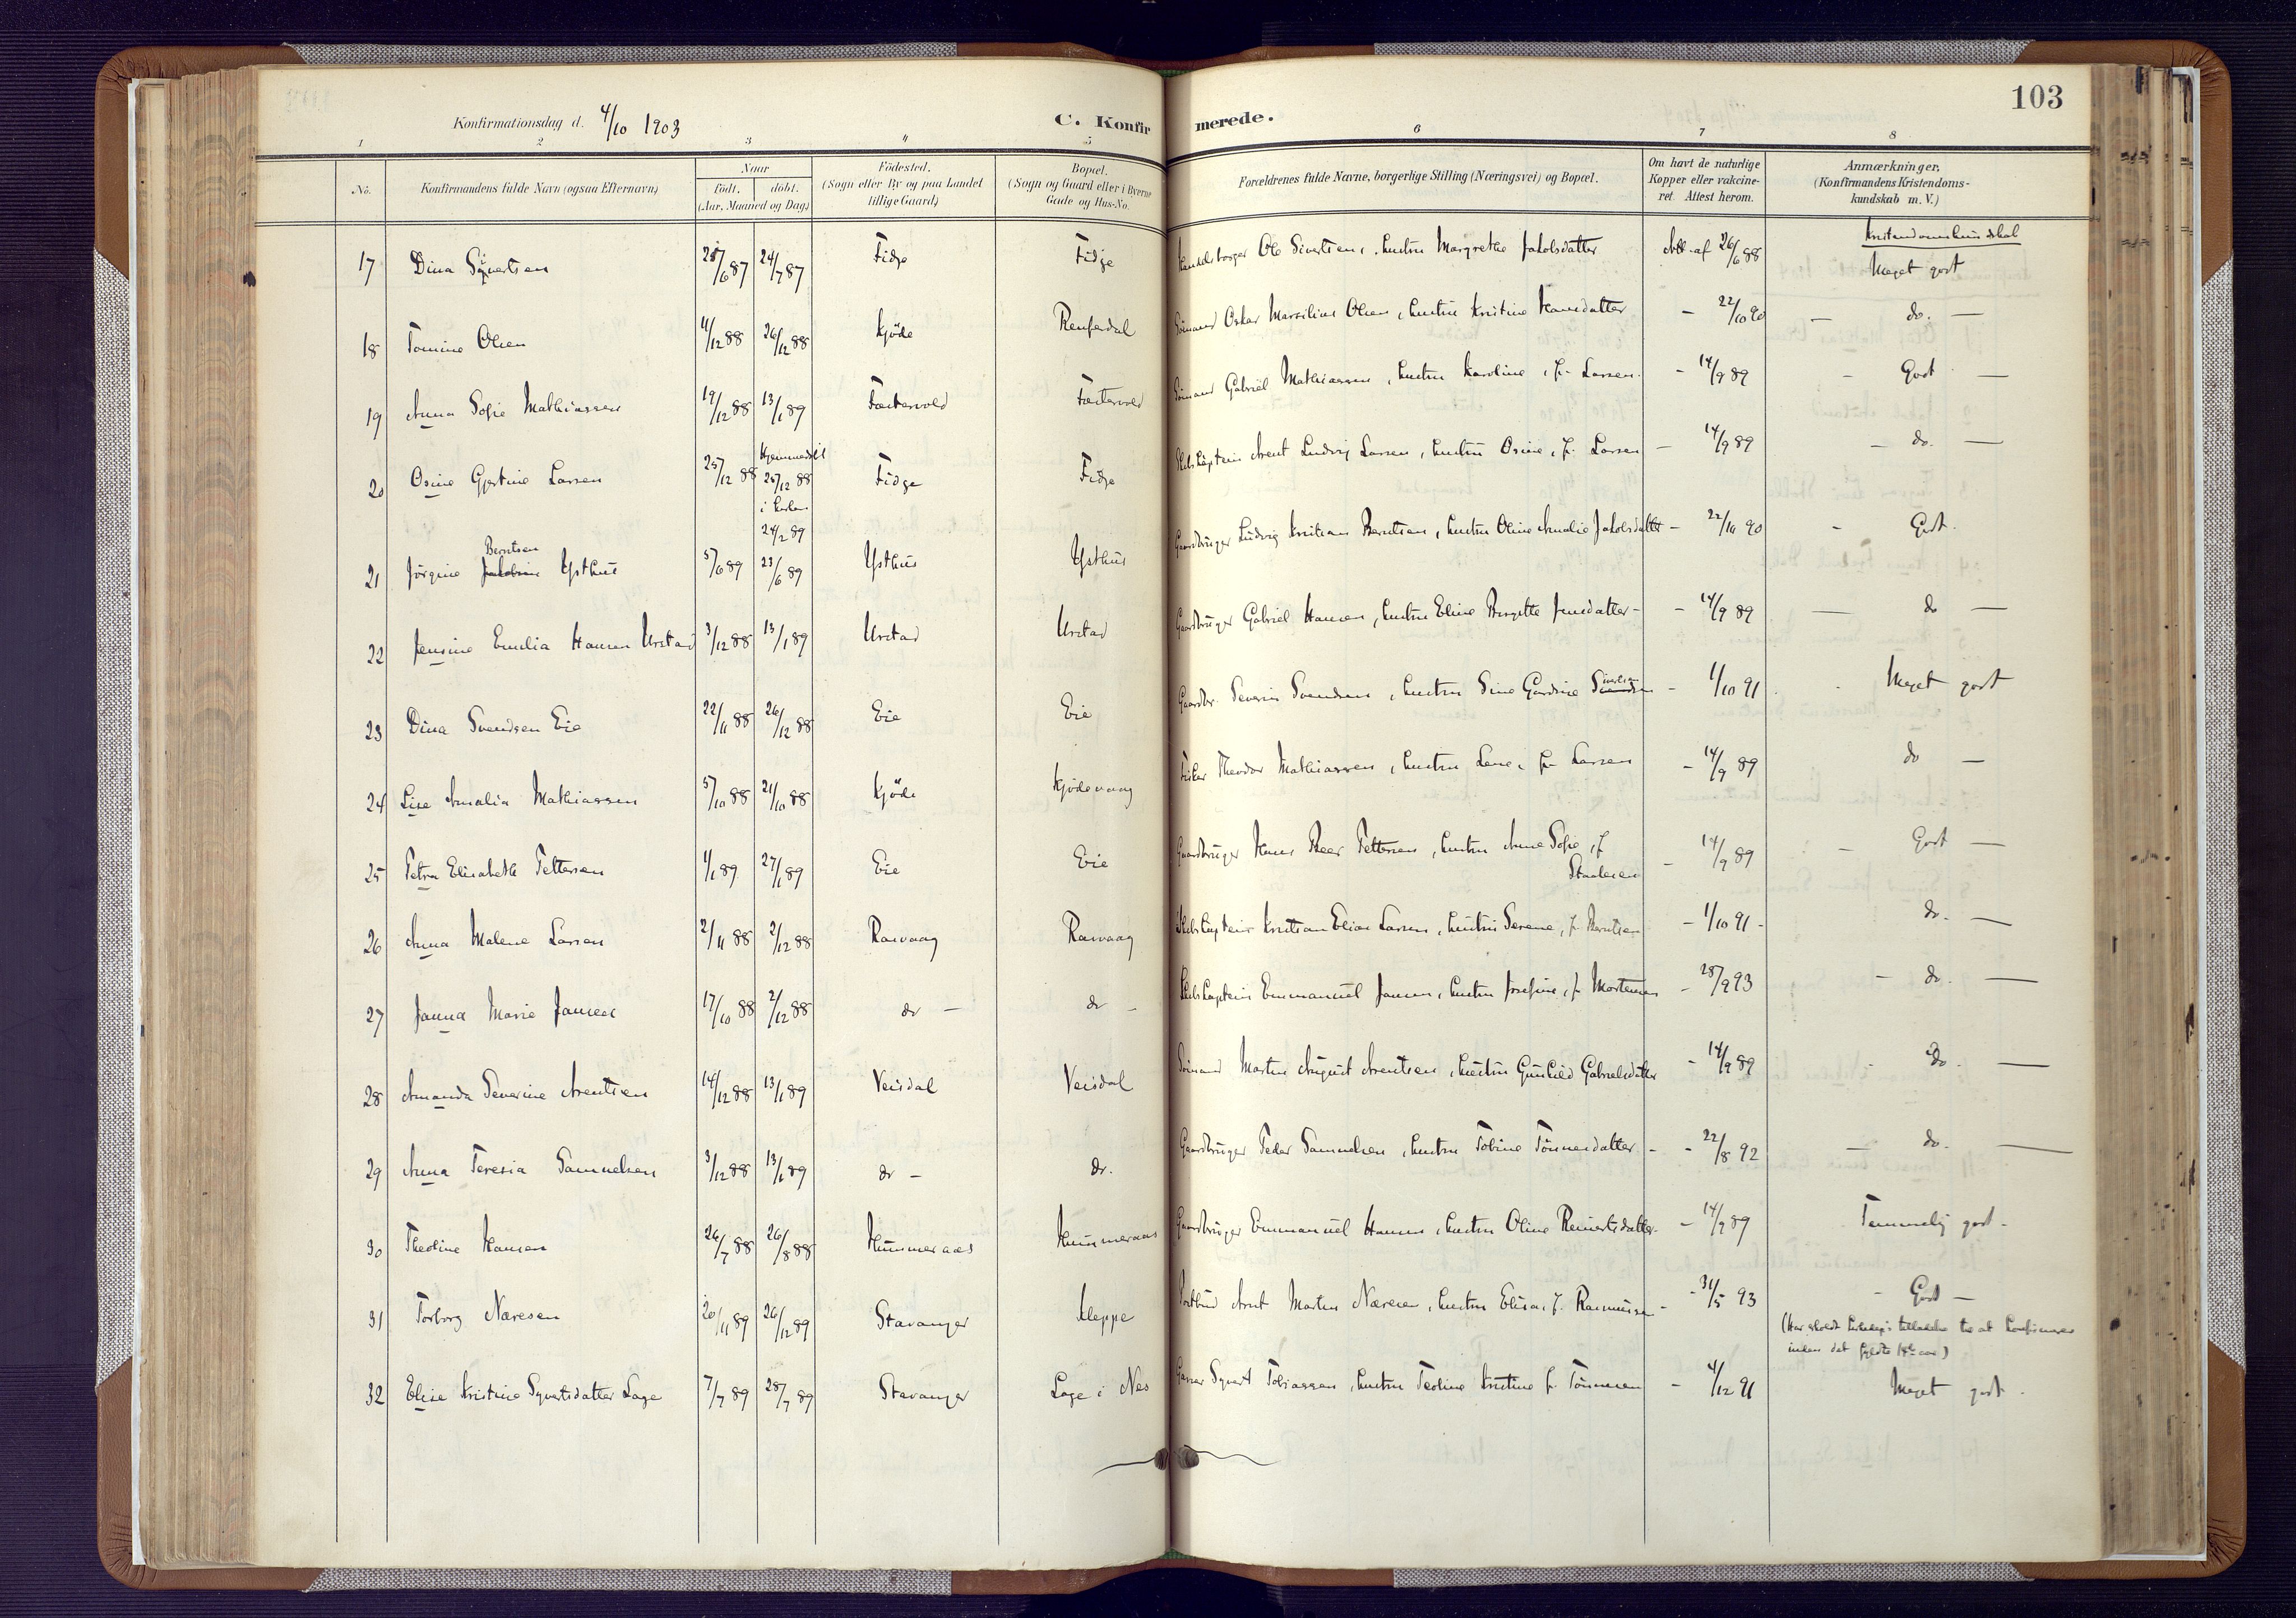 103
Konfirmationsdag d. 4/10 1903
C. Konfirmerede.
1 2 3 4 5 6 7 8
No. Konfirmandens fulde Navn (ogsaa Efternavn) Naar födt. döbt. (Aar, Maaned og Dag.) Födested. (Sogn eller By og paa Landet tillige Gaard) Bopæl. (Sogn og Gaard eller i Byerne Gade og Hus-No. Forældrenes fulde Navne, borgerlige Stilling (Næringsvei) og Bopæl. Om havt de naturlige Kopper eller vakcineret. Attest herom. Anmærkninger, (Konfirmandens Kristendomskundskab m. V.)
Kristendomskundskab
17 Dina Sivertsen /6 87 24/7 87 Fidje Fidje Handelsborger Ole Sivertsen, hustru Margrethe Jakobsdatter Att. af 26/6 88 Meget godt
18 Tomine Olsen 11/12 88 26/12 88 Kjöde Rensedal Sömand Oskar Marsilius Olsen, hustru Kristine Hansdatter - 22/10 90 - do. -
19 Anna Sofie Mathiassen 19/12 88 13/1 89 Fæstervold Fæstervold Sömand Gabriel Mathiassen, hustru Karoline, f. Larsen - 14/9 89 - Godt -
20 Osine Gjertine Larsen 25/12 88 Hjemmedöbt 25/12 88 i Kirken 24/2 89 Fidje Fidje Skibskaptein Arent Ludvig Larsen, hustru Osine, f. Larsen - 14/9 89 - do. -
21 Jörgine Jakobine Berntsen Ysthus 5/6 89 23/6 89 Ysthus Ysthus Gaardbruger Ludvig Kristian Berntsen, hustru Oline Amalie Jakobsdatter - 22/10 90 - Godt.
22 Jensine Emilia Hansen Urstad 3/12 88 13/1 89 Urstad Urstad Gaardbruger Gabriel Hansen, hustru Eline Birgitte Jensdatter - - 14/9 89 - do -
23 Dina Svendsen Eie 22/11 88 26/12 88 Eie Eie Gaardbr. Severin Svendsen, hustru Sine Gurdine Sivertsen - 1/10 91 Meget godt
24 Lise Amalia Mathiassen 5/10 88 21/10 88 Kjöde Kjödevaag Fisker Theodor Mathiassen, hustru Lene, f. Larsen - 14/9 89 do -
25 Petra Elisabeth Pettersen 1/1 89 27/1 89 Eie Eie Gaardbruger Hans Peer Pettersen, hustru Anne Sofie, f. Staalesen - 14/9 89 - Godt -
26 Anna Malene Larsen 2/11 88 2/12 88 Rasvaag Rasvaag Skibskaptein Kristian Elias Larsen, hustru Serene, f. Berntsen - 1/10 91 - do. -
27 Janna Marie Jansen 17/10 88 2/12 88 do - do - Skibskaptein Emmanuel Jansen, hustru Josefine, f. Mortensen - 28/9 93 - do. -
28 Amanda Severine Arentsen 14/12 88 13/1 89 Veisdal Veisdal Sömand Martin August Arentsen, hustru Gunhild Gabrielsdatter - 14/9 89 - do. -
29 Anna Teresia Samuelsen 3/12 88 13/1 89 do - do. Gaardbruger Peder Samuelsen, hustru Tobine Tönnesdatter - - 22/8 92 - do. -
30 Theoline Hansen 26/7 88 26/8 88 Hummeraas Hummeraas Gaardbruger Emmanuel Hansen, hustru Oline Reiertsdatter - 14/9 89 Temmelig godt -
31 Torborg Næresen 20/11 89 26/12 89 Stavanger Kleppe Postbud Arnt Martin Næresen, hustru Elisa, f. Rasmussen - 31/5 93 - Godt -
(Har erholdt Kirkedep's tilladelse til at konfirmeres
inden det fyldte 14de aar)
32 Elise Kristine Syvertsdatter Lage 7/7 89 28/7 89 Stavanger Lage i Nes Garver Syvert Tobiassen, hustru Teoline Kristine f. Tönnesen - 4/12 91 Meget godt.